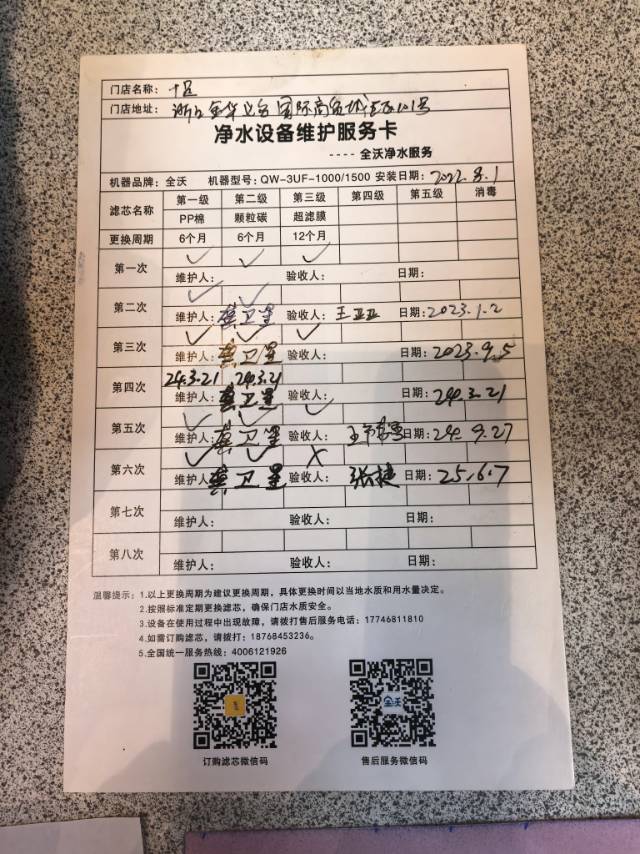 门店名称：
门店地址：浙江金华义乌国际商贸城
净水设备维护服务卡
---- 全沃净水服务
机器品牌：全沃 机器型号：QW-3UF-1000/1500 安装日期：2022.8.1
滤芯名称 第一级 第二级 第三级 第四级 第五级 消毒
PP棉 颗粒碳 超滤膜
更换周期 6个月 6个月 12个月
第一次 ✓ ✓ ✓
维护人： 验收人： 日期：
第二次 ✓ ✓
维护人：龚卫星 验收人：王亚亚 日期：2023.1.2
第三次 ✓ ✓ ✓
维护人：龚卫星 验收人： 日期：2023.9.5
第四次 24.3.21 24.3.21
维护人：龚卫星 验收人： 日期：24.3.21
第五次 ✓ ✓ ✓
维护人：龚卫星 验收人： 日期：24.9.27
第六次 ✓ ✓ X
维护人：龚卫星 验收人：张捷 日期：25.6.7
第七次
维护人： 验收人： 日期：
第八次
维护人： 验收人： 日期：
温馨提示：1.以上更换周期为建议更换周期，具体更换时间以当地水质和用水量决定。
2.按照标准定期更换滤芯，确保门店水质安全。
3.设备在使用过程中出现故障，请拨打售后服务电话：17746811810
4.如需订购滤芯，请拨打：18768453236。
5.全国统一服务热线：4006121926
全沃
订购滤芯微信码 售后服务微信码